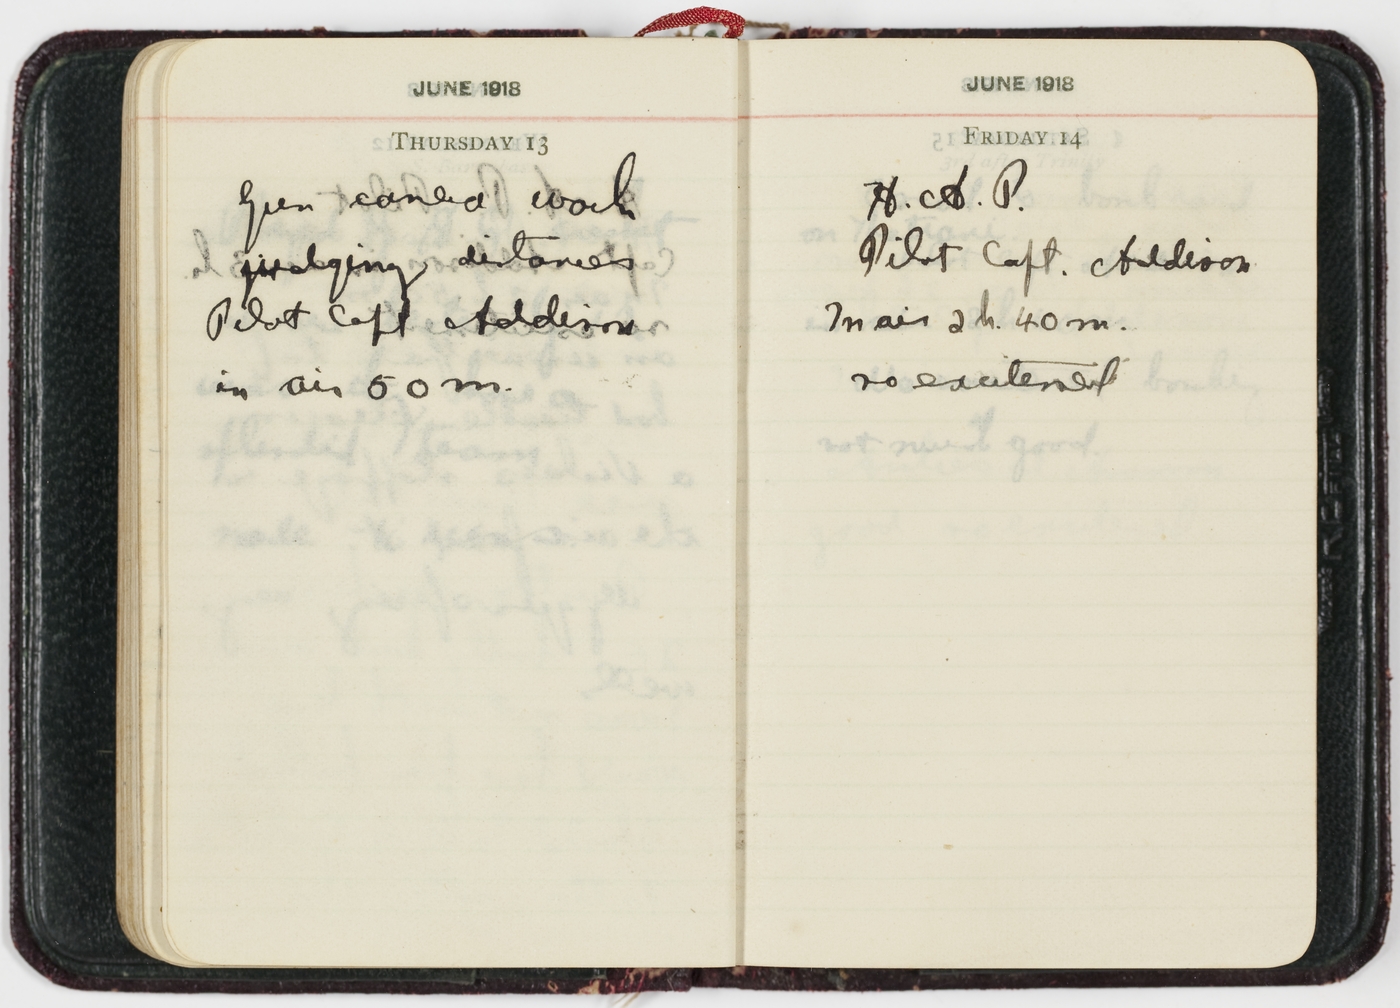 JUNE 1918
THURSDAY 13
Gun camera work
judging distances
Pilot Capt Addison
in air 50 m.
JUNE 1918
FRIDAY 14
H. A. P.
Pilot Capt. Addison
In air 2 h. 40 m.
no excitement